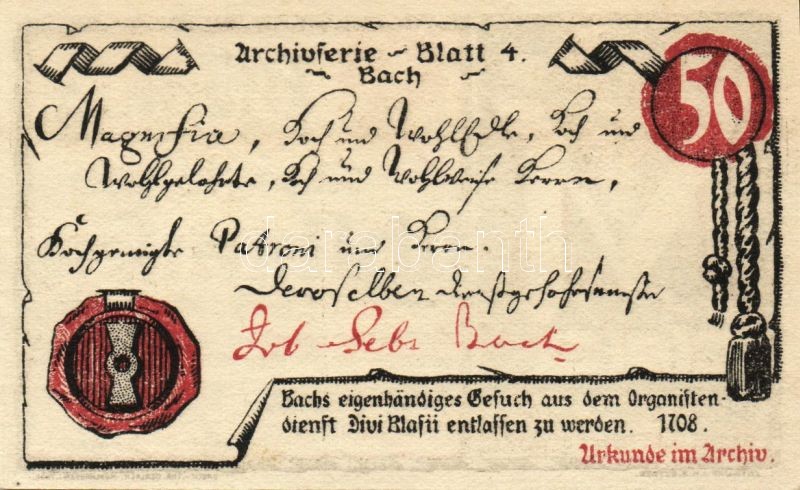 Archivserie - Blatt 4.
- Bach -
50
Magnifia, Hoch und WohlEdle, Hoch und
Wohlgelahrte, Hoch und Wohlweise Herren,
Hochgeneigte Patroni und Herren.
Deroselben
Joh Sebs Bach
Bachs eigenhändiges Gesuch aus dem Organisten-
dienst Divi Blasii entlassen zu werden. 1708.
Urkunde im Archiv.
darabanth